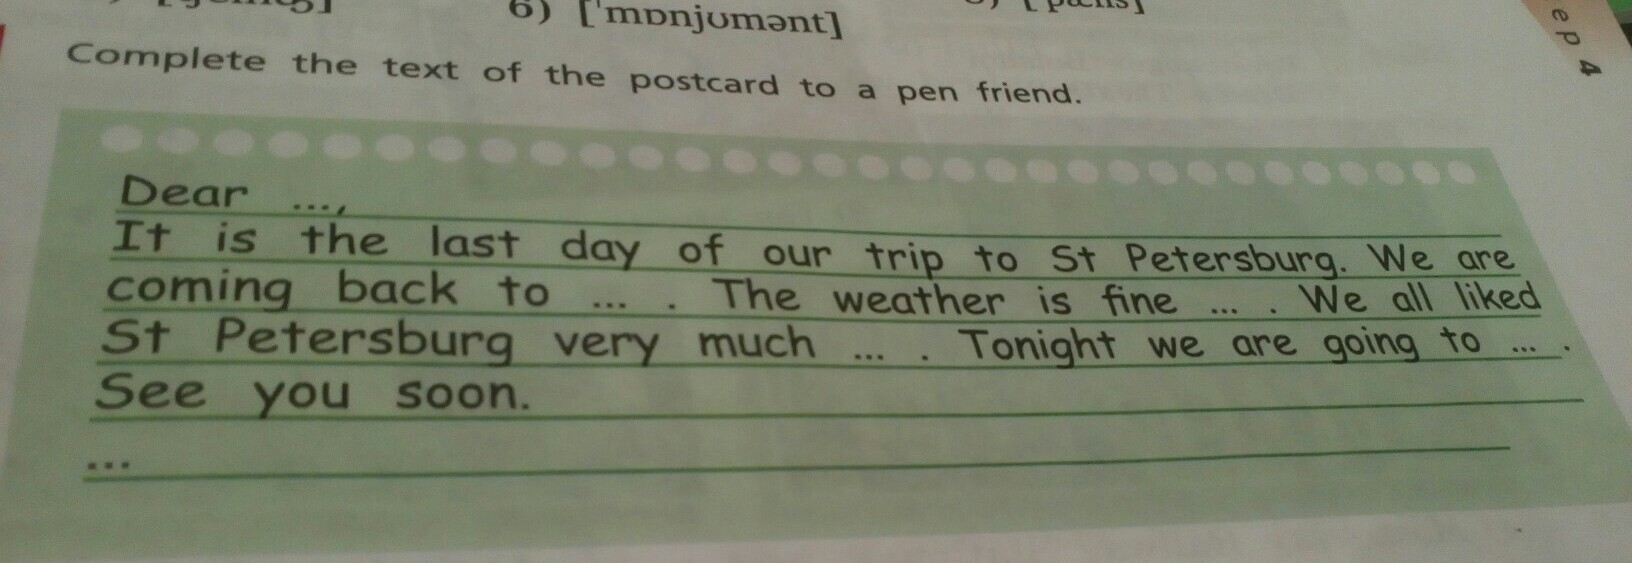 6) ['mɒnjʊmənt]
ep 4
Complete the text of the postcard to a pen friend.
Dear ...,
It is the last day of our trip to St Petersburg. We are
coming back to ... . The weather is fine ... . We all liked
St Petersburg very much ... . Tonight we are going to ... .
See you soon.
...